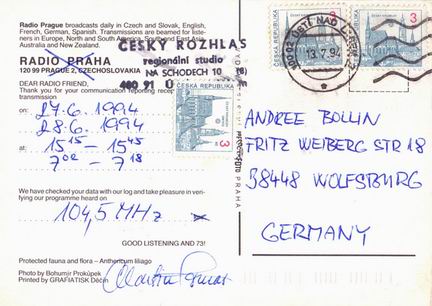 Radio Prague broadcasts daily in Czech and Slovak, English,
French, German, Spanish. Transmissions are beamed for liste-
ners in Europe, North and South America, Southeast East Asia
Australia and New Zealand.
RADIO PRAHA
120 99 PRAGUE 2, CZECHOSLOVAKIA
ČESKÝ ROZHLAS
regionální studio
NA SCHODECH 10
400 91 Ú
DEAR RADIO FRIEND,
Thank you for your communication reporting recep
transmission
on: 27.6.1994
28.6.1994
at: 15 15 - 15 45
7 02 - 7 18
We have checked your data with our log and take pleasure in veri-
fying our programme heard on
104,5 MHz
GOOD LISTENING AND 73!
Protected fauna and flora – Anthericum liliago
Photo by Bohumír Prokůpek
Printed by GRAFIATISK Děčín
ČESKÁ REPUBLIKA
3
ČESKÁ REPUBLIKA
3
ČESKÁ REPUBLIKA
3
ÚSTÍ NAD
13.7.94
PRAHA
ANDREE BOLLIN
FRITZ WEIBERG STR 18
38448 WOLFSBURG
GERMANY